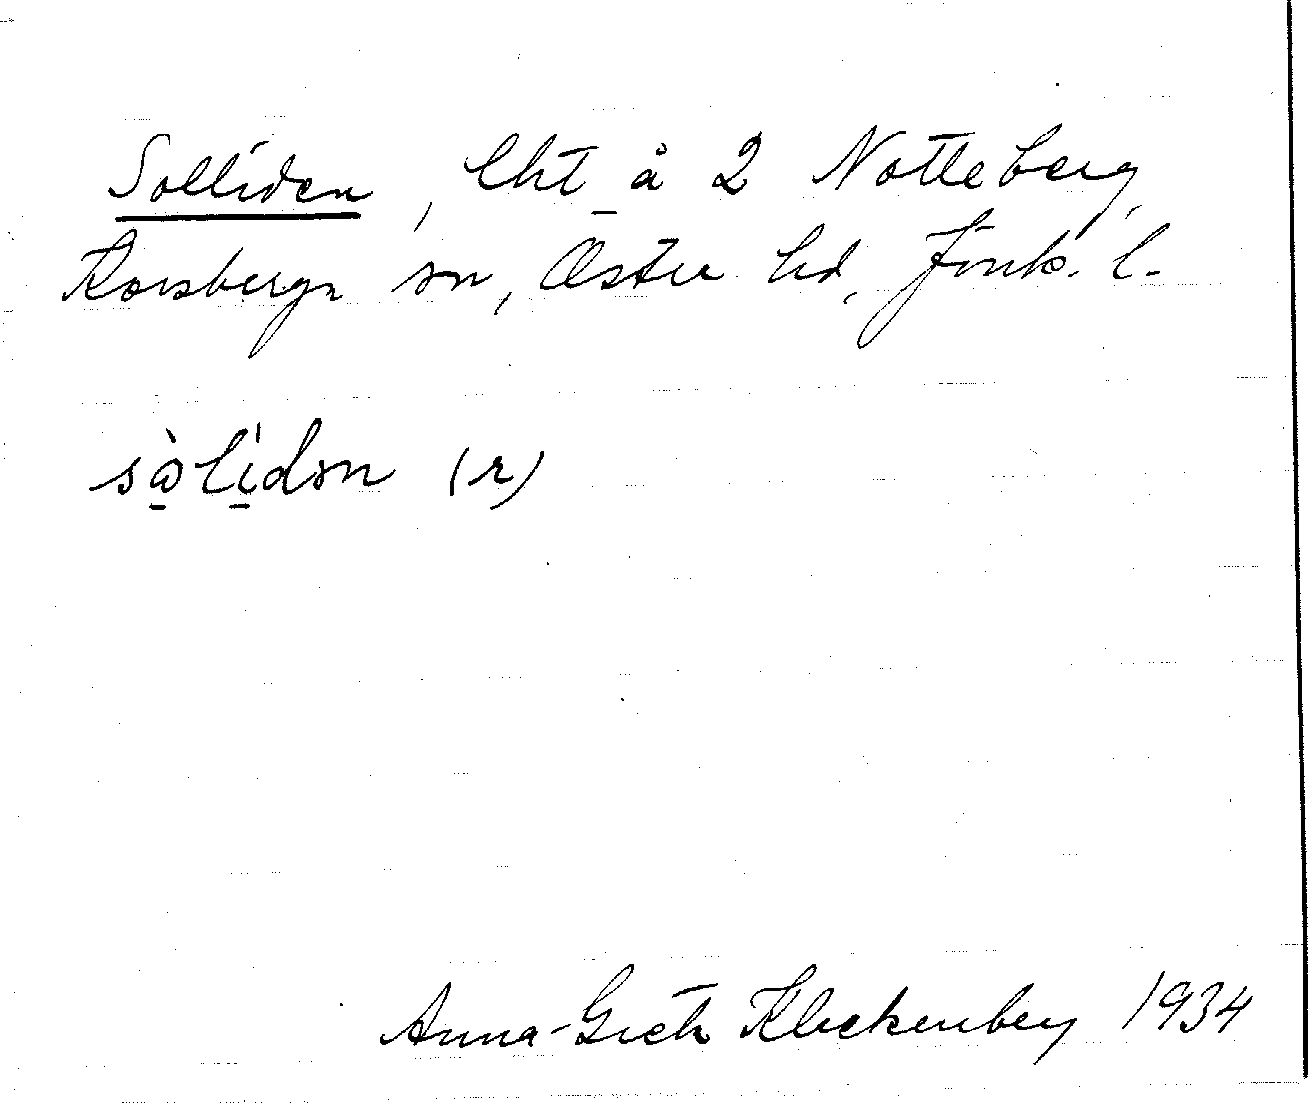 Solliden, lht å 2 Notteberg,
Korsberga sn, Östra hd, Jönk. l.
sòlídən (r)
Anna-Greta Kleckenberg 1934